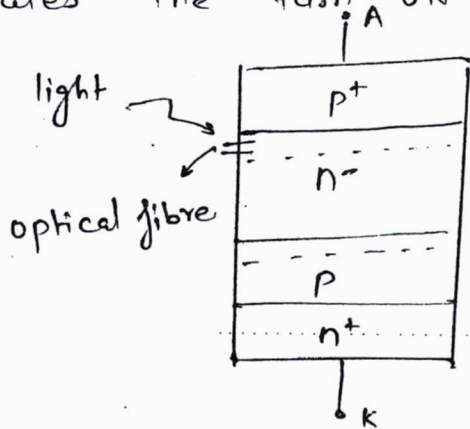 the
A
light
p+
n-
optical fibre
p
n+
K